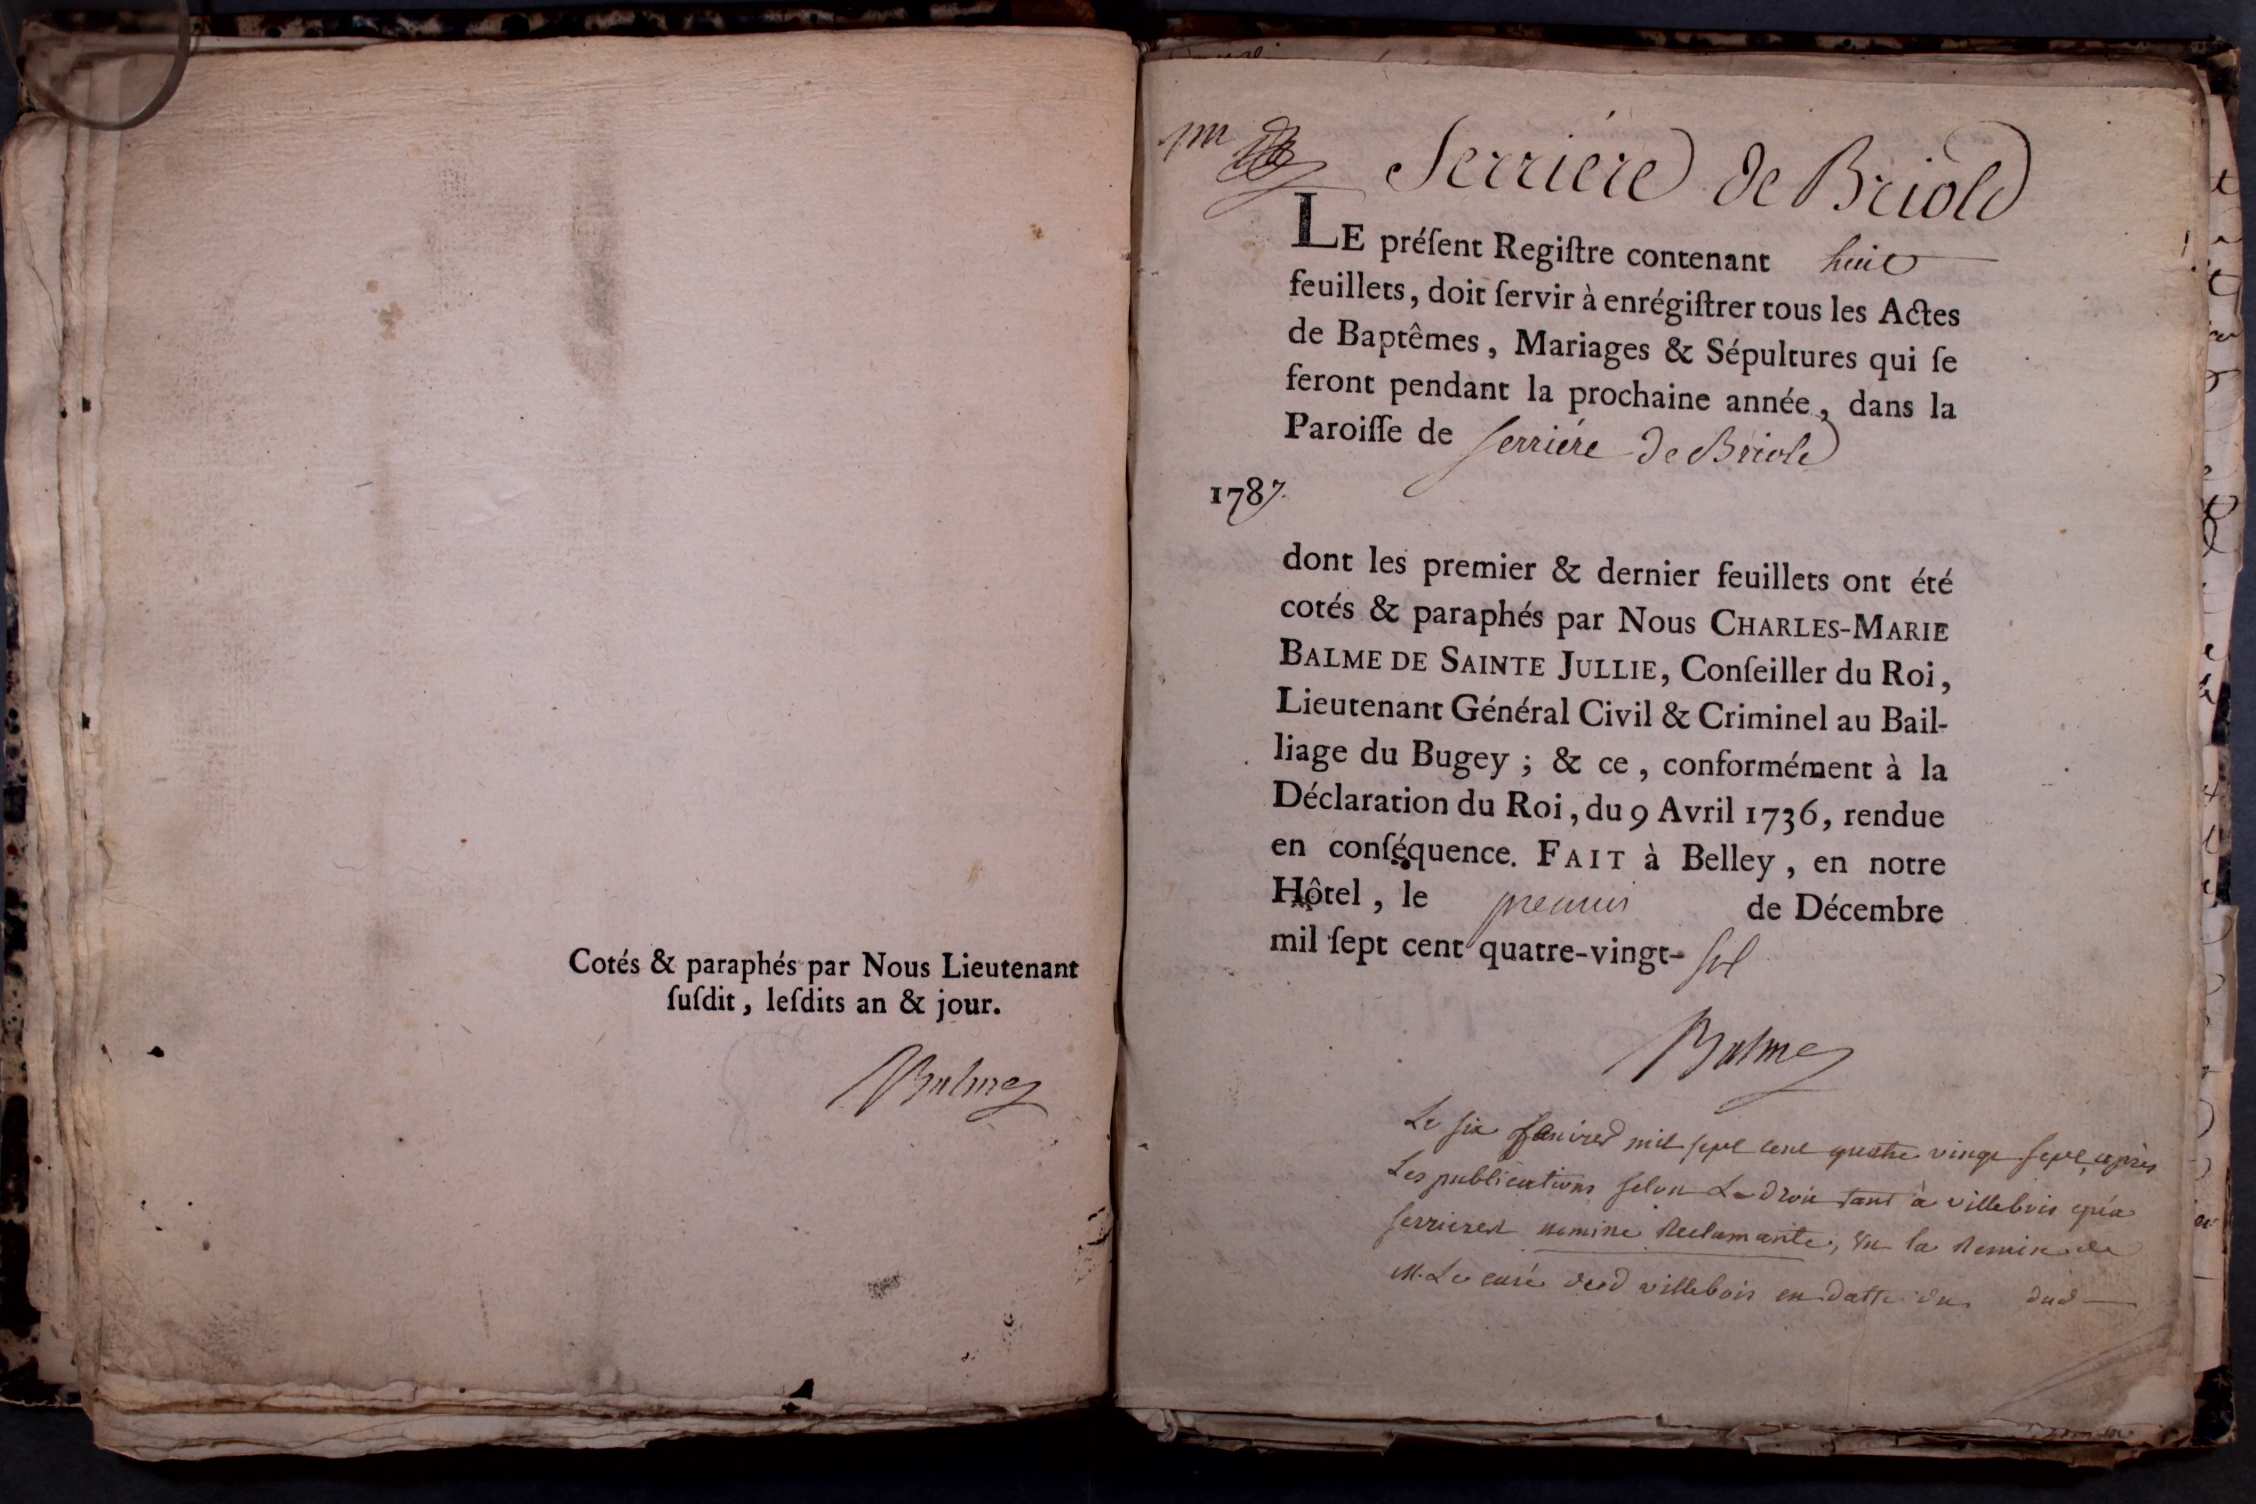 Cotés & paraphés par Nous Lieutenant
ſuſdit, leſdits an & jour.
Balme
pm
Serriere de Briold
LE préſent Regiſtre contenant huit
feuillets, doit ſervir à enrégiſtrer tous les Actes
de Baptêmes, Mariages & Sépultures qui ſe
feront pendant la prochaine année, dans la
Paroiſſe de Serriére de Briole
1787.
dont les premier & dernier feuillets ont été
cotés & paraphés par Nous CHARLES-MARIE
BALME DE SAINTE JULLIE, Conſeiller du Roi,
Lieutenant Général Civil & Criminel au Bail-
liage du Bugey ; & ce, conformément à la
Déclaration du Roi, du 9 Avril 1736, rendue
en conſéquence. FAIT à Belley, en notre
Hôtel, le premier de Décembre
mil ſept cent quatre-vingt-
Balme
Le six mil sept cent quatre vingt sept après
Les publications selon Le droit tant à villebois qu'a
serrieres nemine Reclamante, Vu la Remise de
M. Le curé dud villebois en datte du dud